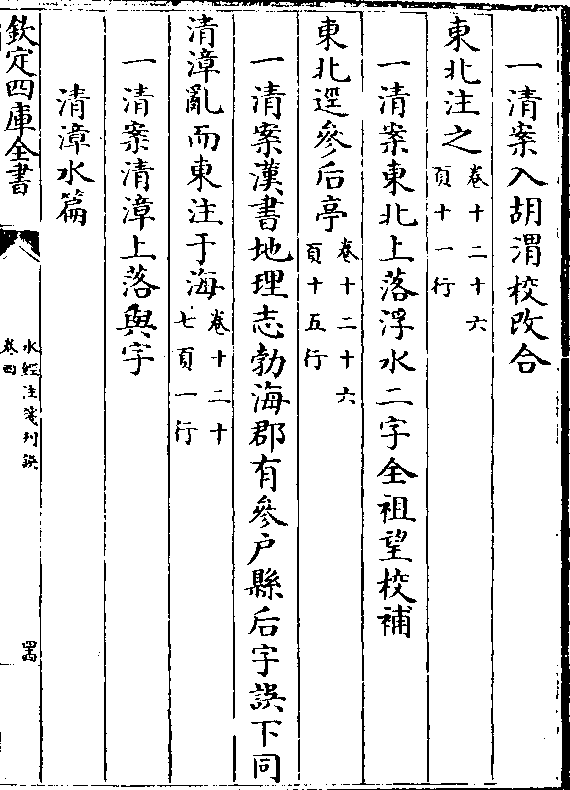 一清案入胡渭校改合
東北注之卷十二十六頁十一行
一清案東北上落浮水二字全祖望校補
東北逕參后亭卷十二十六頁十五行
一清案漢書地理志勃海郡有參户縣后字誤下同
清漳亂而東注于海卷十二十七頁一行
一清案清漳上落與字
清漳水篇
欽定四庫全書
水經注箋刊誤
卷四